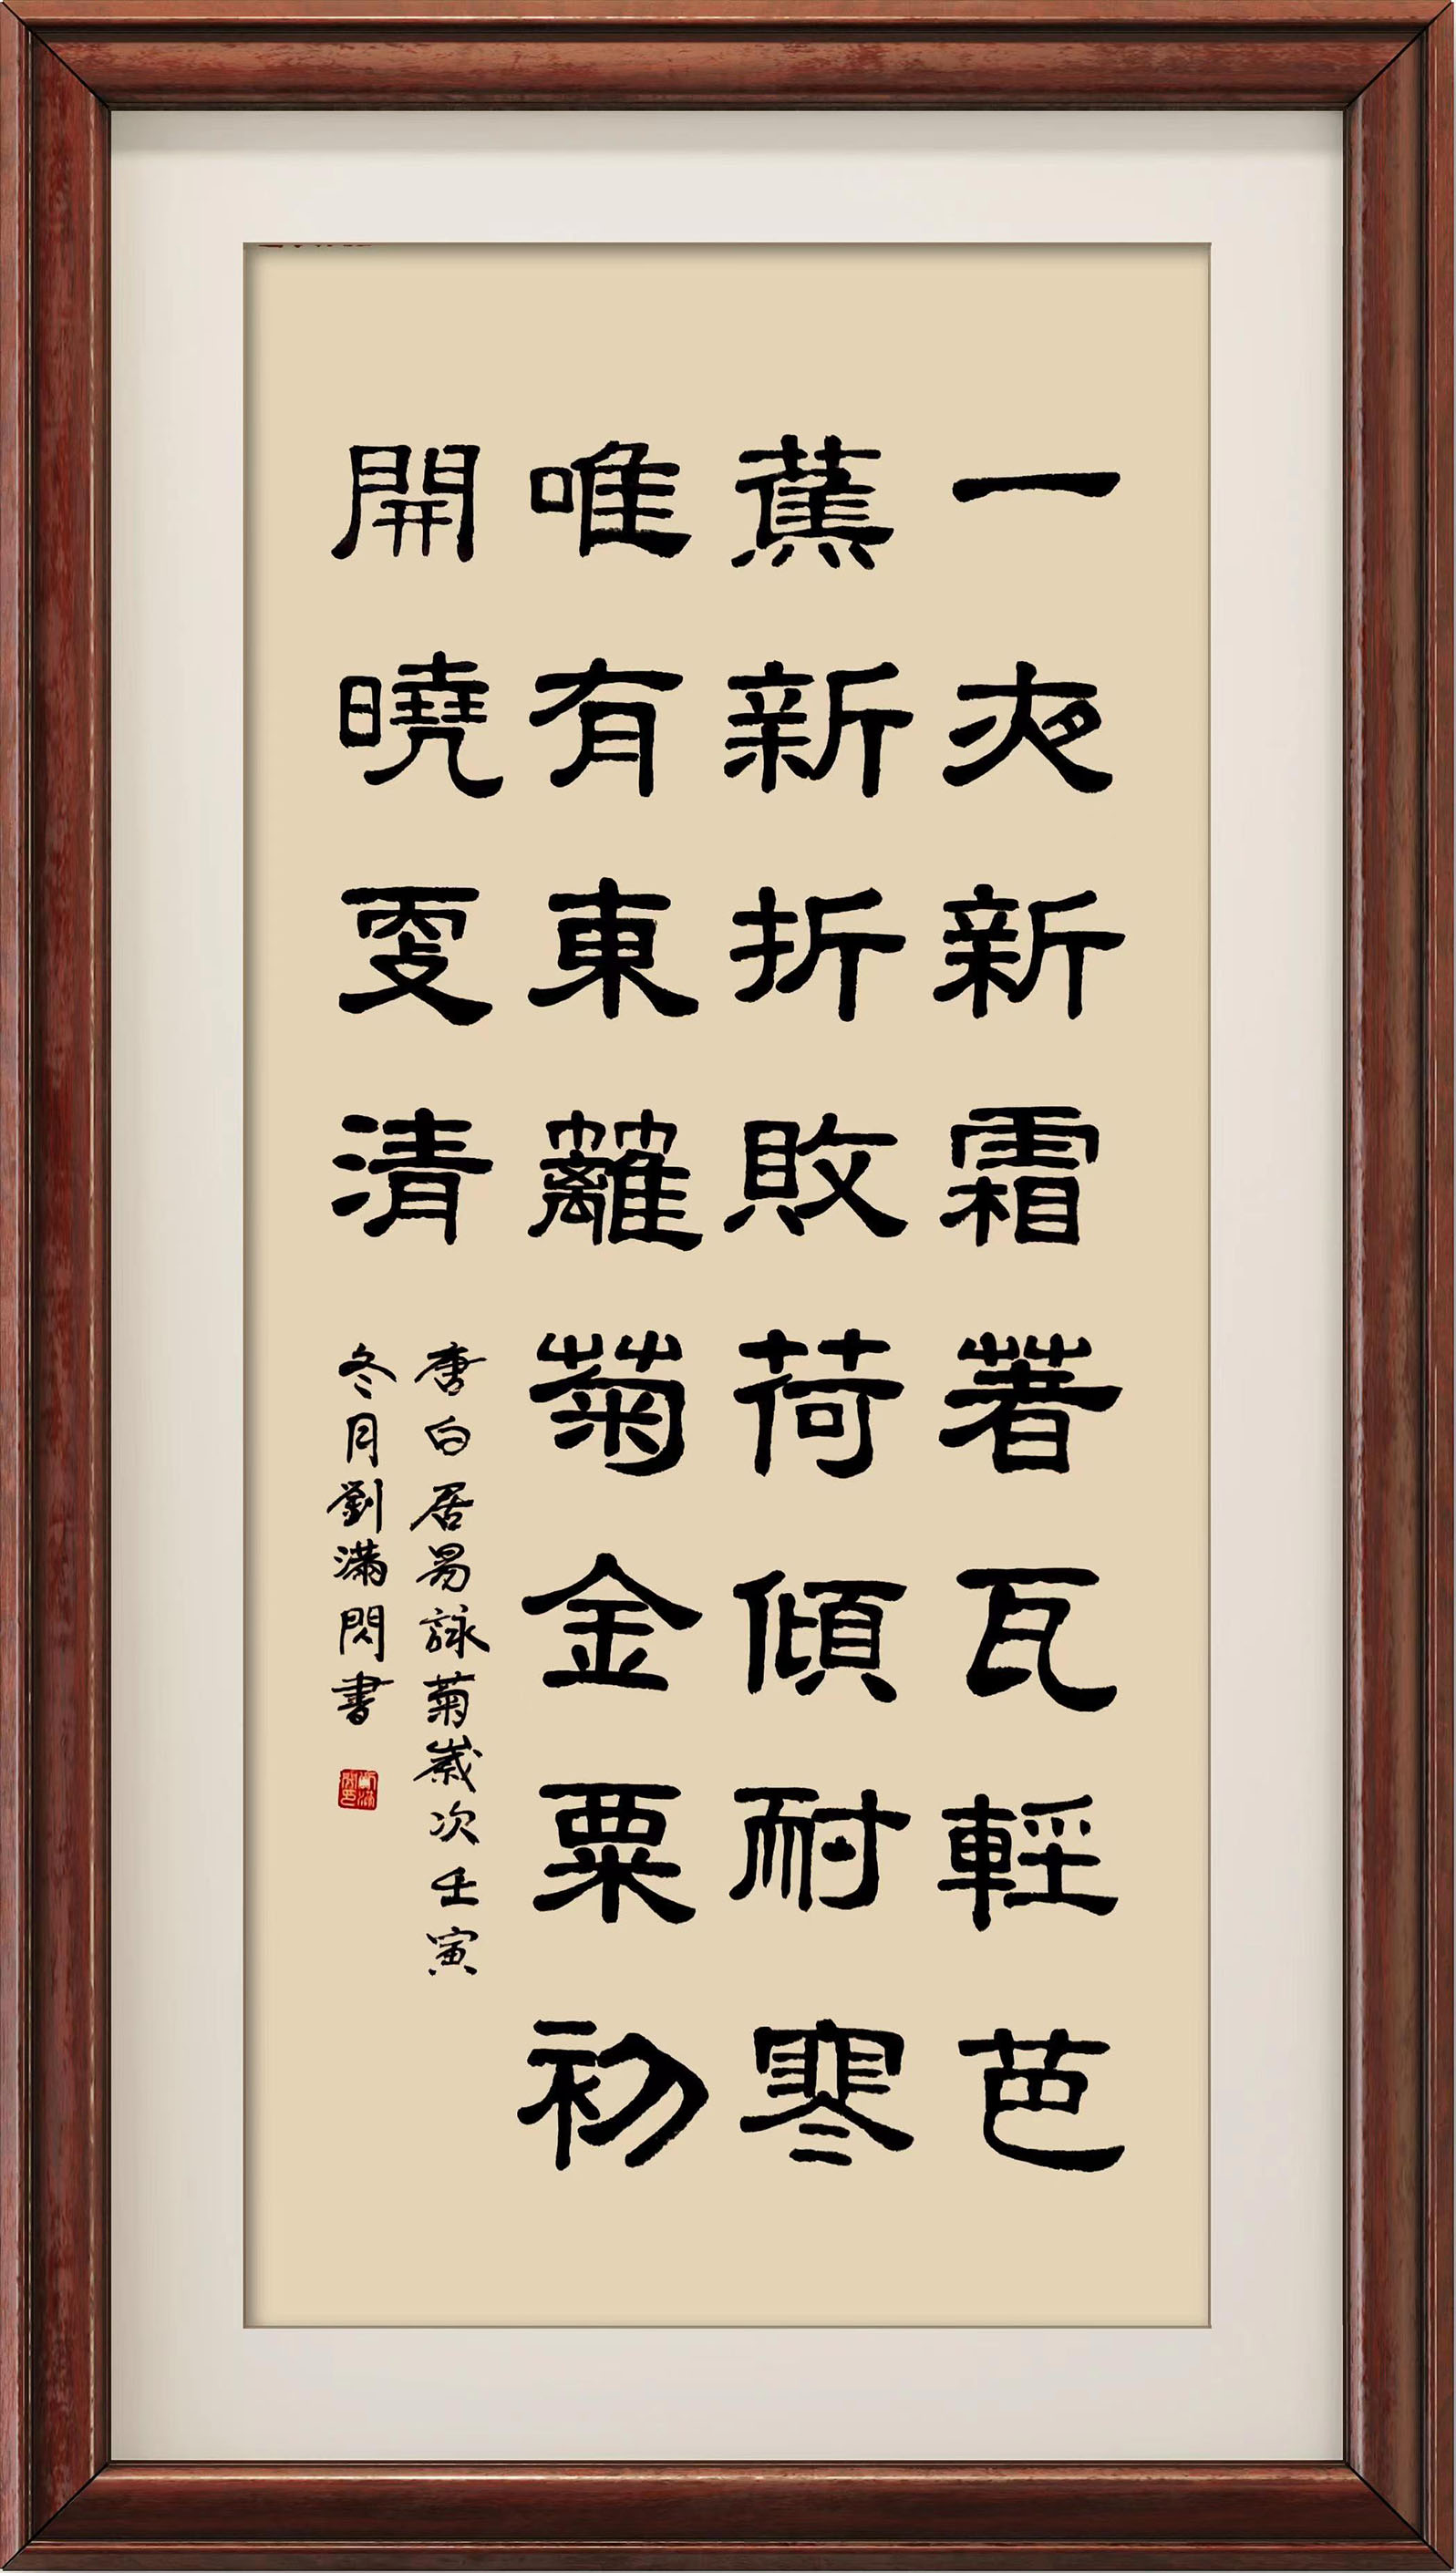 一夜新霜著瓦輕芭
蕉新折敗荷傾耐寒
唯有東籬菊金粟初
開曉更清
唐白居易詠菊歲次壬寅
冬月劉滿閃書